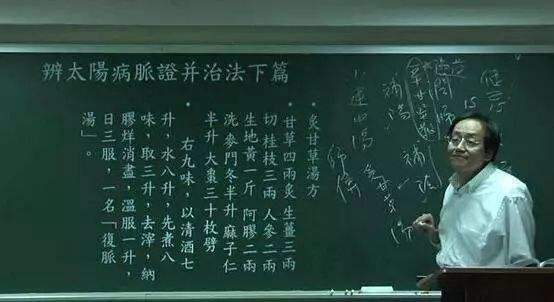 辨太陽病脈證并治法下篇
・炙甘草湯方
・甘草四兩炙 生薑三兩
切 桂枝三兩 人參二兩
生地黃一斤 阿膠二兩
洗 麥門冬半升 麻子仁
半升 大棗三十枚劈
・右九味，以清酒七
升，水八升，先煮八
味，取三升，去滓，納
膠烊消盡，溫服一升，
日三服，一名「復脈
湯」。
15
補陽
小建中湯
炙甘草湯